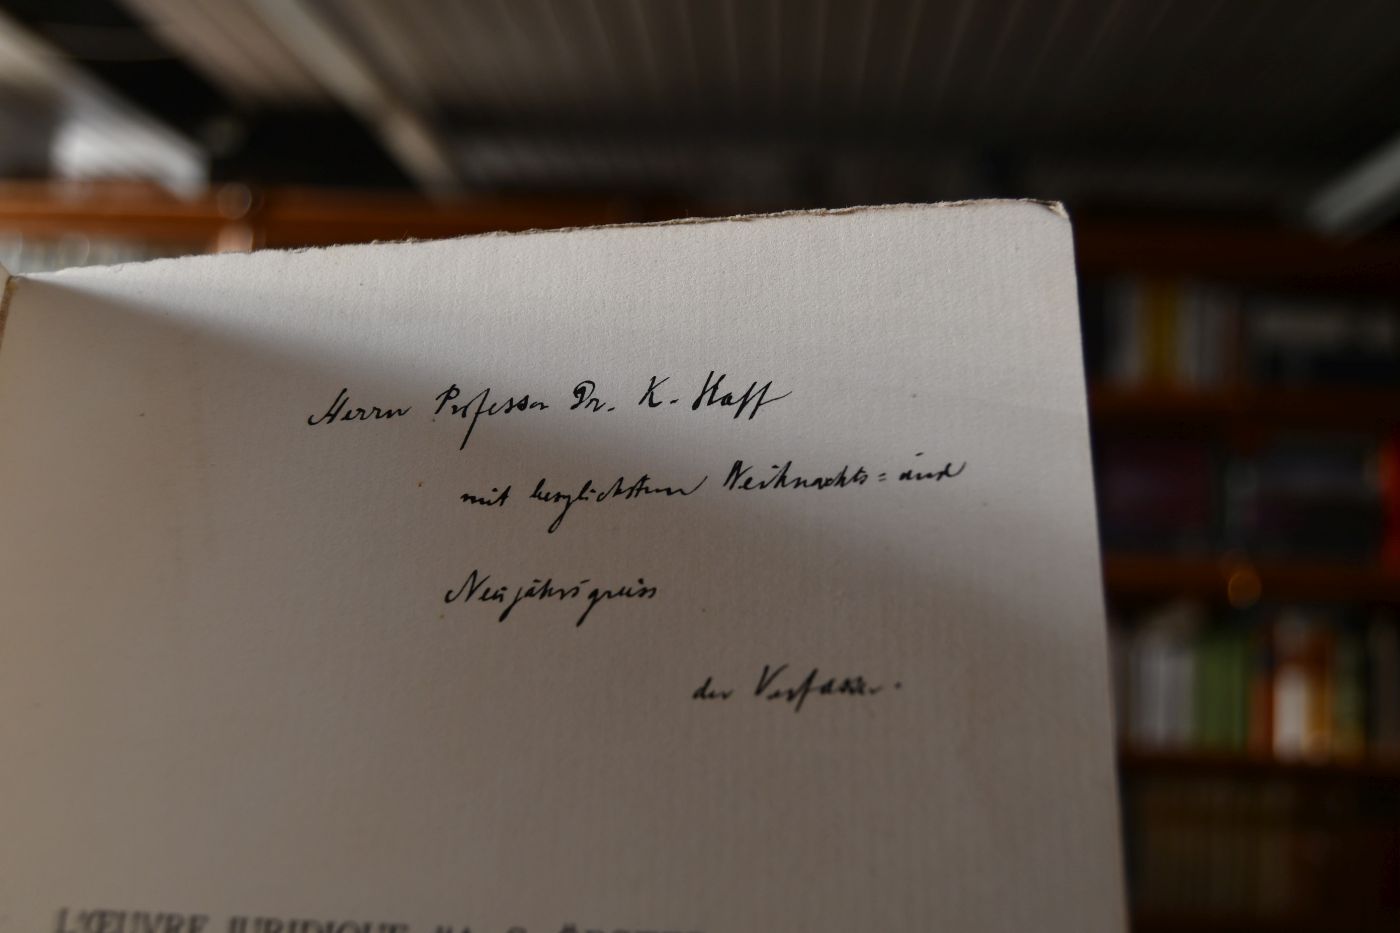 Herrn Professor Dr. K. Haff
mit herzlichstem Weihnachts= und
Neujahrsgruss
der Verfasser.
L'ŒUVRE JURIDIQUE D'A. S. ÖRSTED